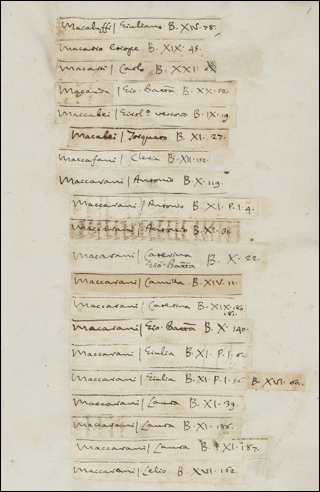 Macaluffi / Giuliano B. XIV. 78.
Macario Etiope B. XIX. 45.
Macasti / Carlo B. XXI.
Macanda / Gio: Batta B. XX. 12.
Maccabei / Girolº vescovo B. IX. 19.
Maccabei / Torquato B. XI. 27.
Maccafani / Cleria B. XII. 152.
Maccarani / Antonio B. X. 119.
Maccarani / Antonio B. XI. P. I. 9.
Maccarani / Antonio B. XI. 36.
Maccarani / Caterina B. X. 22.
Gio: Batta
Maccarani / Camilla B. XIV. 11.
Maccarani / Caterina B. XIX. 180.
181.
Maccarani / Gio: Batta B. X. 140.
Maccarani / Giulia B. XI. P. I. 6.
Maccarani / Giulia B. XI. P. I. 56. B. XVI. 62.
Maccarani / Laura B. XI. 39.
Maccarani / Laura B. XI. 186.
Maccarani / Laura B. XI. 187.
Maccarani / Lelio B. XVI. 162.